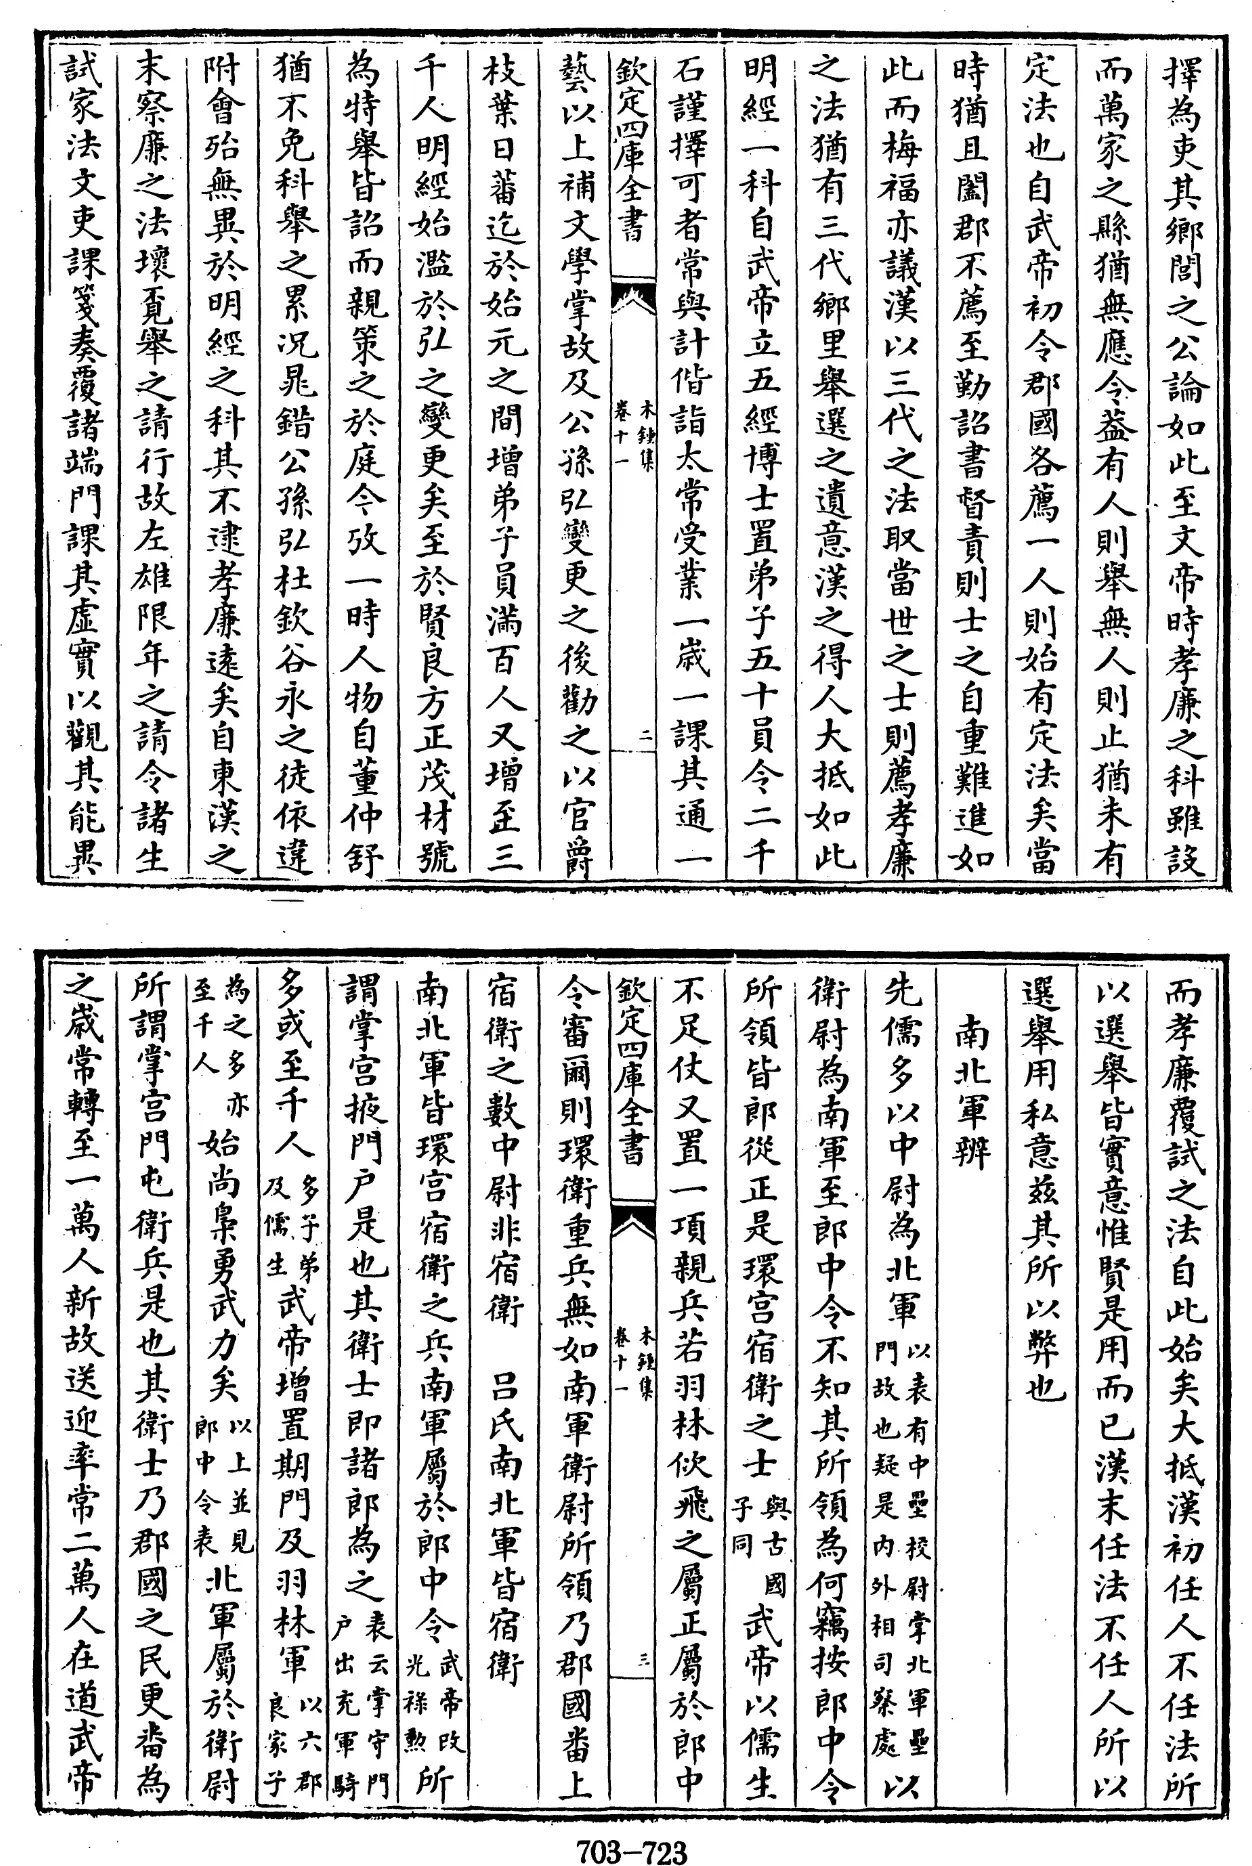 擇為吏其鄉閭之公論如此至文帝時孝廉之科雖設
而萬家之縣猶無應令葢有人則舉無人則止猶未有
定法也自武帝初令郡國各薦一人則始有定法矣當
時猶且闔郡不薦至勤詔書督責則士之自重難進如
此而梅福亦議漢以三代之法取當世之士則薦孝廉
之法猶有三代鄉里舉選之遺意漢之得人大抵如此
明經一科自武帝立五經博士置弟子五十員令二千
石謹擇可者常與計偕詣太常受業一歲一課其通一
欽定四庫全書
木鍾集
卷十一
二
藝以上補文學掌故及公孫弘變更之後勸之以官爵
枝葉日蕃迄於始元之間增弟子員滿百人又增至三
千人明經始濫於弘之變更矣至於賢良方正茂材號
為特舉皆詔而親策之於庭令攷一時人物自董仲舒
猶不免科舉之累况晁錯公孫弘杜欽谷永之徒依違
附會殆無異於明經之科其不逮孝廉遠矣自東漢之
末察廉之法壞覔舉之請行故左雄限年之請令諸生
試家法文吏課箋奏覆諸端門課其虛實以觀其能異
而孝廉覆試之法自此始矣大抵漢初任人不任法所
以選舉皆實意惟賢是用而已漢末任法不任人所以
選舉用私意茲其所以弊也
南北軍辨
先儒多以中尉為北軍以表有中壘校尉掌北軍壘門故也疑是内外相司察處以
衛尉為南軍至郎中令不知其所領為何竊按郎中令
所領皆郎從正是環宫宿衛之士與古國子同武帝以儒生
不足仗又置一項親兵若羽林佽飛之屬正屬於郎中
欽定四庫全書
木鍾集
卷十一
三
令審爾則環衛重兵無如南軍衛尉所領乃郡國番上
宿衛之數中尉非宿衛 吕氏南北軍皆宿衛
南北軍皆環宫宿衛之兵南軍屬於郎中令武帝改光祿勲所
謂掌宫掖門户是也其衛士即諸郎為之表云掌守門户出充軍騎
多或至千人多子弟及儒生武帝增置期門及羽林軍以六郡良家子
為之多亦至千人始尚梟勇武力矣以上並見郎中令表北軍屬於衛尉
所謂掌宫門屯衛兵是也其衛士乃郡國之民更畨為
之歲常轉至一萬人新故送迎率常二萬人在道武帝
703-723